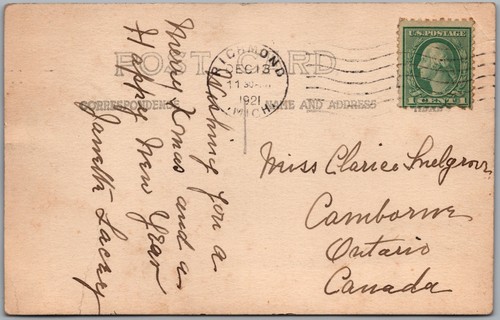 POST CARD
CORRESPONDENCE
NAME AND ADDRESS
RICHMOND
DEC 13
11 30 AM
1921
MICH.
U.S. POSTAGE
1 CENT 1
Wishing you a
Merry Xmas and a
Happy New Year
Janette Lackey
Miss Clarice Snelgrove
Camborne
Ontario
Canada